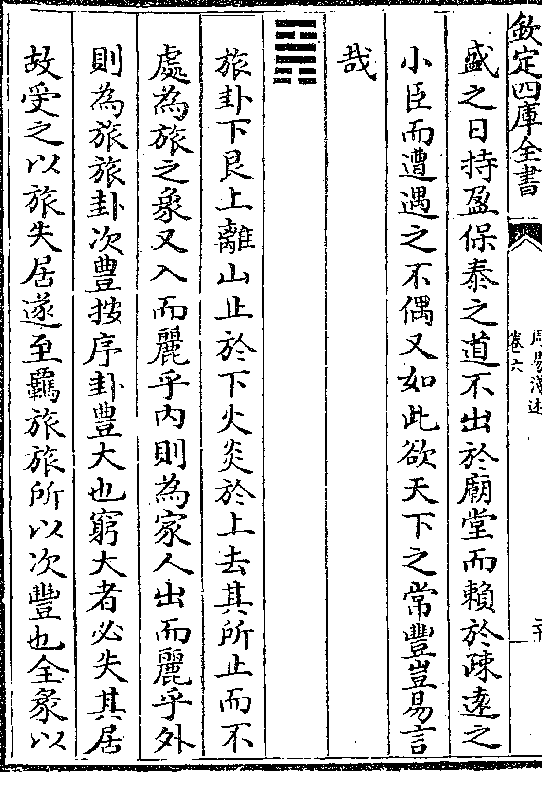 欽定四庫全書
周易淺述
卷六
盛之日持盈保泰之道不出於廟堂而賴於疎遠之
小臣而遭遇之不偶又如此欲天下之常豐豈易言
哉
旅卦下艮上離山止於下火炎於上去其所止而不
處為旅之象又入而麗乎内則為家人出而麗乎外
則為旅旅卦次豊按序卦豊大也窮大者必失其居
故受之以旅失居遂至羈旅旅所以次豐也全彖以